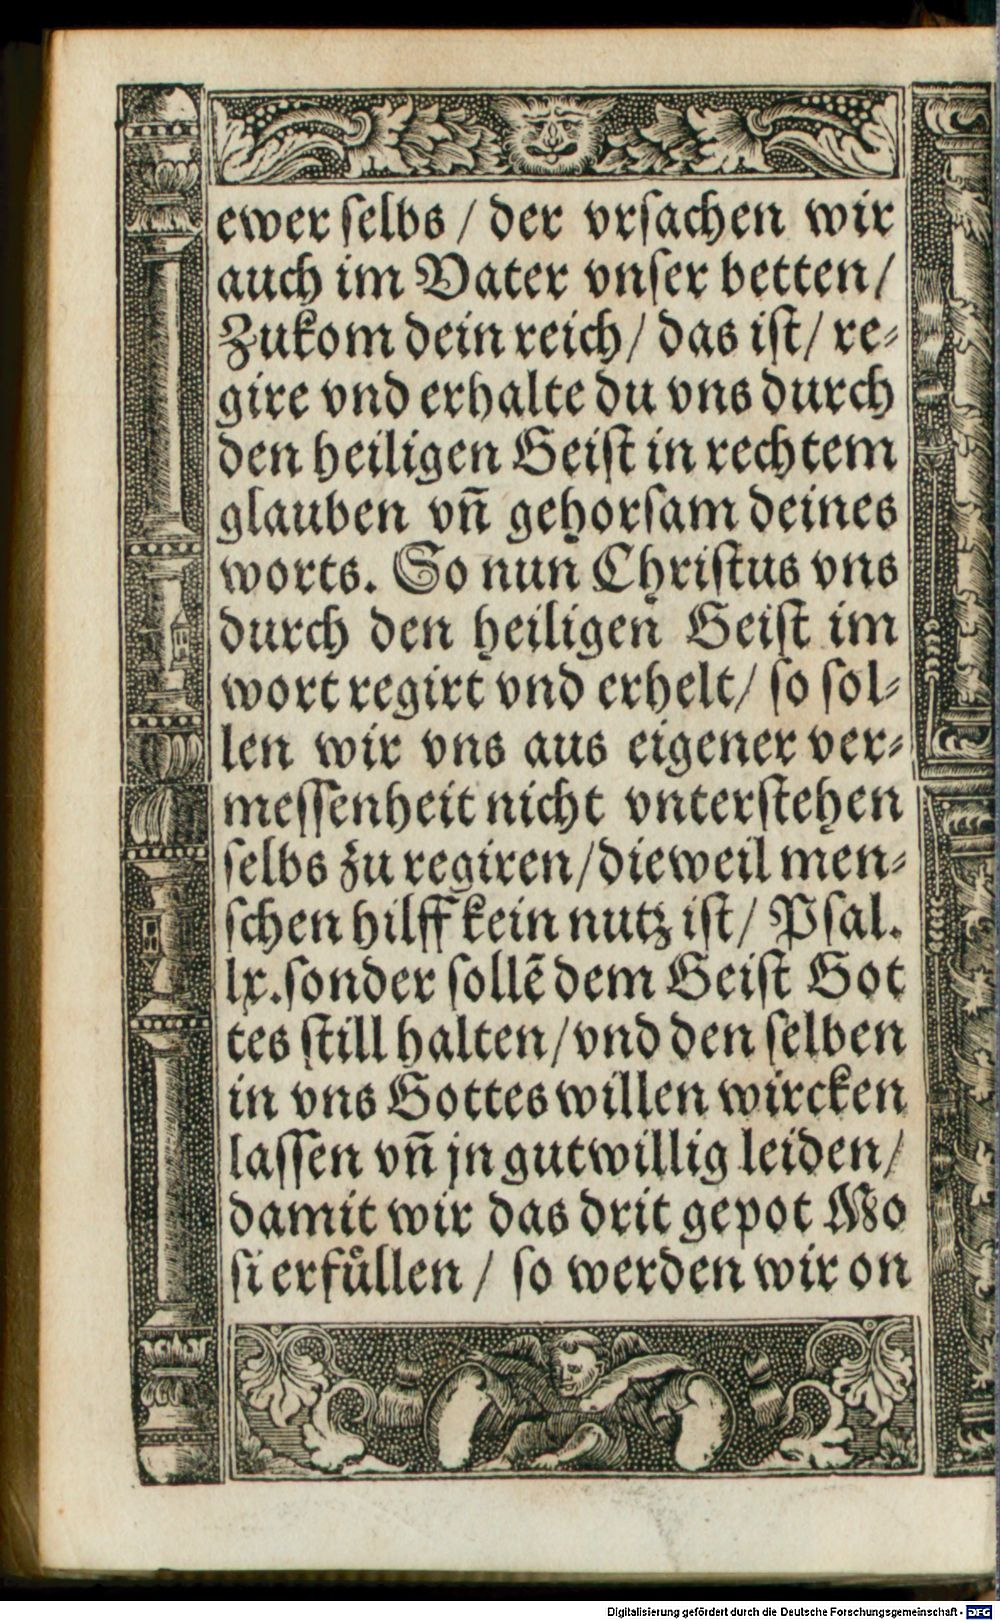 ewer selbs / der vrsachen wir
auch im Vater vnser betten /
Zukom dein reich / das ist / re⸗
gire vnd erhalte du vns durch
den heiligen Geist in rechtem
glauben vn̄ gehorsam deines
worts. So nun Christus vns
durch den heiligen Geist im
wort regirt vnd erhelt / so sol⸗
len wir vns aus eigener ver⸗
messenheit nicht vnterstehen
selbs zu regiren / dieweil men⸗
schen hilff kein nutz ist / Psal.
lx. sonder sollē dem Geist Got
tes still halten / vnd den selben
in vns Gottes willen wircken
lassen vn̄ jn gutwillig leiden /
damit wir das drit gepot Mo
si erfuͤllen / so werden wir on
Digitalisierung gefördert durch die Deutsche Forschungsgemeinschaft - DFG